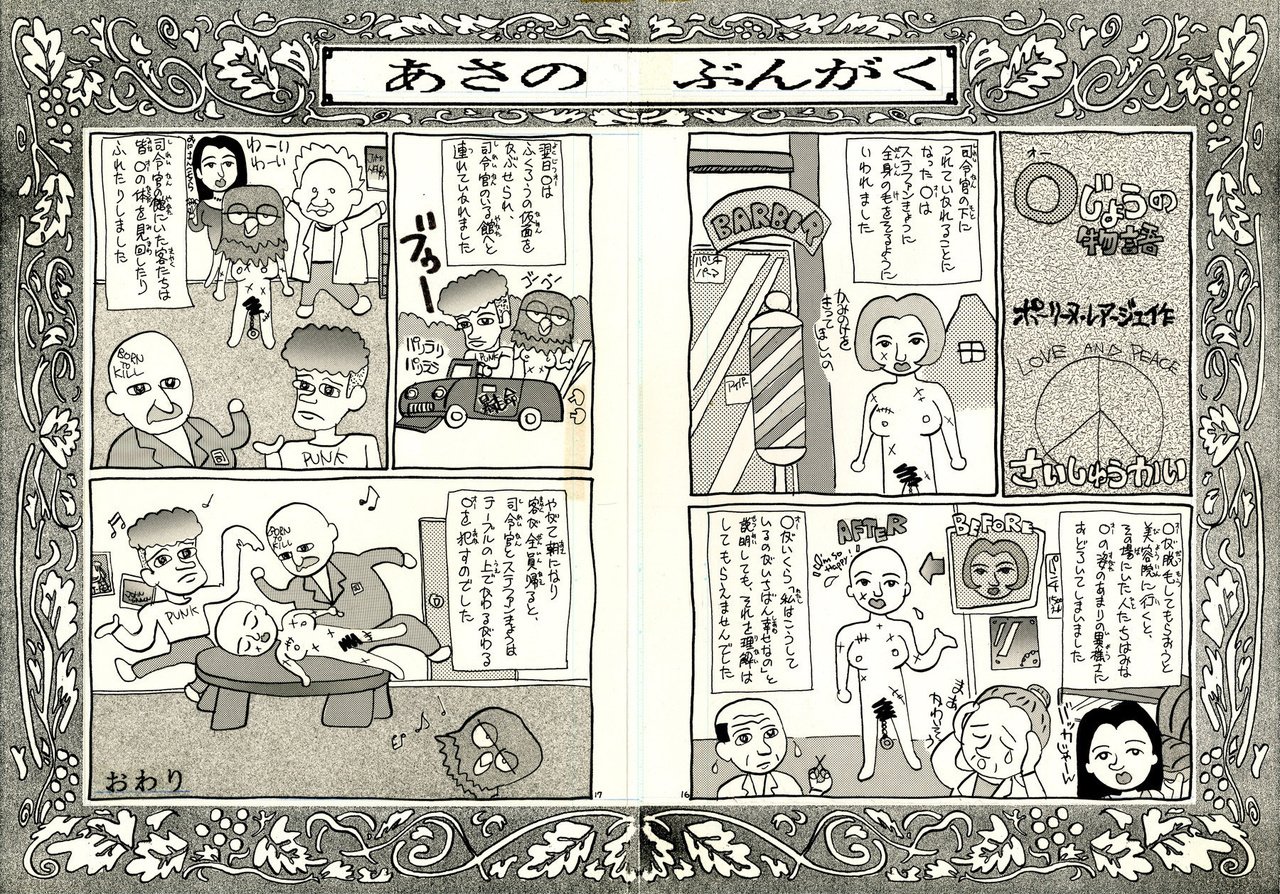 あさの ぶんがく
オー
Oじょうの
物語
ポーリーヌ・レアージュ作
LOVE AND PEACE
さいしゅうかい
司令官の下に
つれていかれることに
なったOは
ステファンきょうに
全身の毛をそるように
いわれました
BARBER
かみのけを
きってほしいの
Oが脱毛してもらおうと
美容院に行くと、
その場にいた人たちはみな
Oの姿のあまりの異様さに
おどろいてしまいました
BEFORE
AFTER
I'm so
Happy!
Oがいくら「私はこうして
いるのがいちばん幸せなの」と
説明しても、それを理解は
してもらえませんでした
まぁ
かわいそう
バッカじゃーん
16
翌日Oは
ふくろうの仮面を
かぶせられ、
司令官のいる館へと
連れていかれました
ブゥー
パラリ
パラリ
PUNK
司令官の館にいた客たちは
皆Oの体を見回したり
ふれたりしました
わーい
わーい
BORN
TO
KILL
PUNK
やがて朝になり
客が全員帰ると、
司令官とステファンきょうは
テーブルの上でかわるがわる
Oを犯すのでした
BORN
TO
KILL
PUNK
おわり
17